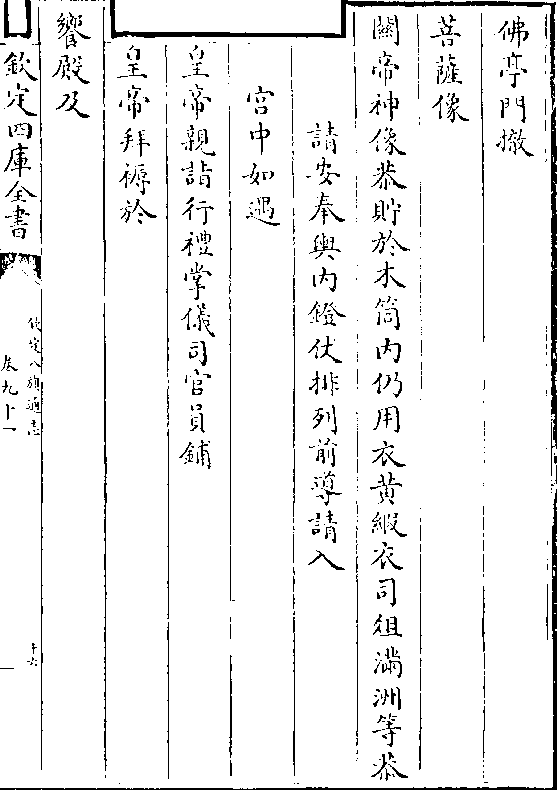 佛亭門撤
菩薩像
關帝神像恭貯於木筒内仍用衣黄緞衣司俎滿洲等恭
請安奉輿内鐙仗排列前導請入
宫中如遇
皇帝親詣行禮掌儀司官員鋪
皇帝拜褥於
饗殿及
欽定四庫全書
欽定八旗通志
卷九十一
十六